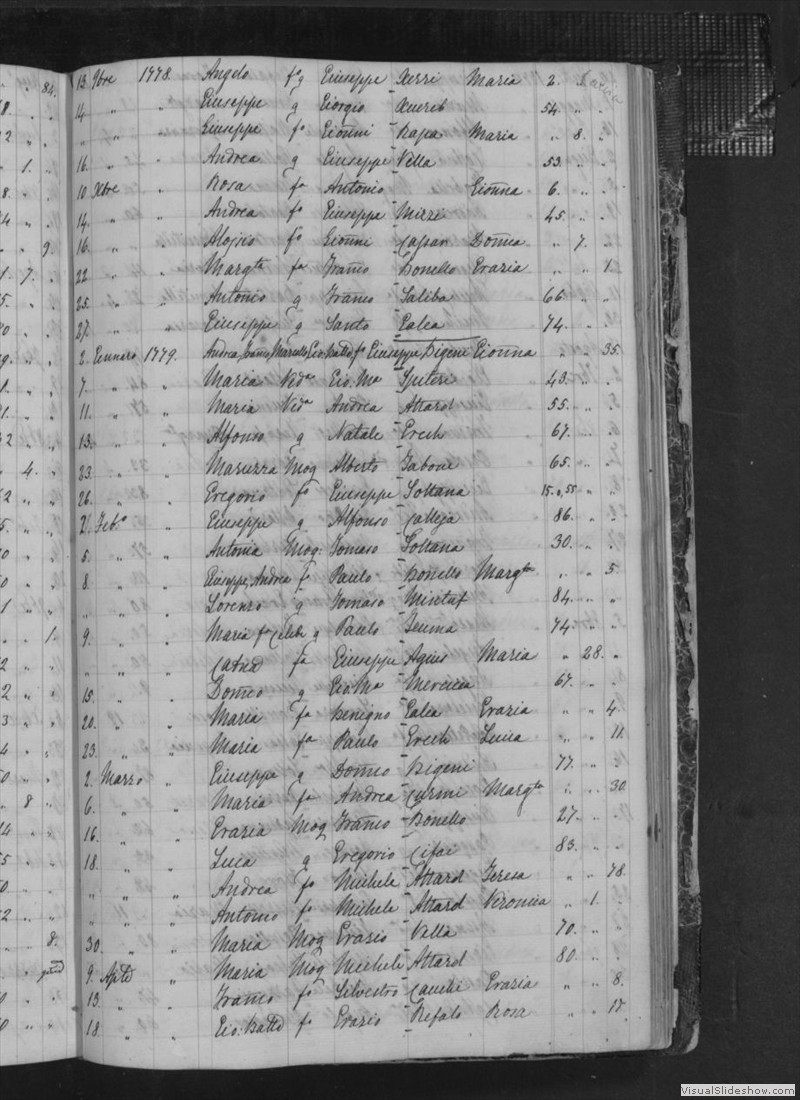 84. 13 9bre 1778. Angelo fo g Giuseppe Xerri Maria 2. „
14 „ „ Giuseppe g Giorgio Xuereb 54. „ „
„ „ „ Giuseppe fo Gionni Rapa Maria „ 8. „
1. 16. „ „ Andrea g Giuseppe Vella 53. „ „
10 Xbre „ Rosa fa Antonio Gionna 6. „ „
14. „ „ Andrea fo Giuseppe Mizzi 45. „ „
9. 16. „ „ Aloisio fo Gionni Caspar Domca „ 7. „
1. 7. 22 „ „ Margta fa Franco Bonello Grazia „ „ 1
25. „ „ Antonio g Franco Saliba 66 „ „
27. „ „ Giuseppe g Santo Galea 74. „ „
2. Gennaro 1779. Andrea Marcello Gio Batta fo Giuseppe Bigeni Gionna „ „ 35.
7. „ „ Maria Vida Gio. Ma Spiteri 43. „ „
11. „ „ Maria Vida Andrea Attard 55. „ „
13. „ „ Alfonso g Natale Grech 67. „ „
4. 23. „ „ Maruzza Mog Alberto Gabone 65. „ „
26. „ „ Gregorio fo Giuseppe Soltana 15. o 55 „ „
2. Febo „ Giuseppe g Alfonso Calleja 86. „ „
5. „ „ Antonia Mog: Tomaso Soltana 30. „ „
8. „ „ Giuseppe, Andrea fo Paulo Bonello Margta „ „ 5.
„ „ „ Lorenzo g Tomaso Mintuf 84. „ „
1. 9. „ „ Maria fa Celibe g Paulo Zeuma 74 „ „
„ „ „ Catna fa Giuseppe Agius Maria „ 28. „
15. „ „ Domco g Gio. Ma Mercieca 67. „ „
20. „ „ Maria fa Benigno Galea Grazia „ „ 4
23. „ „ Maria fa Paulo Grech Luca „ „ 11.
2. Marzo „ Giuseppe g Domco Bigeni 77. „ „
8 6. „ „ Maria fa Andrea Curmi Margta „ „ 30.
16. „ „ Grazia Mog Franco Bonello 27. „ „
18. „ „ Luca g Gregorio Cifai 83. „ „
„ „ „ Andrea fo Michele Attard Teresa „ „ 78.
„ „ „ Antonio fo Michele Attard Vironica „ 1. „
8. 30. „ „ Maria Mog Grazio Vella 70. „ „
9. Aple „ Maria Mog Michele Attard 80. „ „
13. „ „ Franco fo Silvestro Cauchi Grazia „ „ 8.
18. „ „ Gio: Batta fo Grazio Refalo Rosa „ „ 17.
VisualSlideshow.com